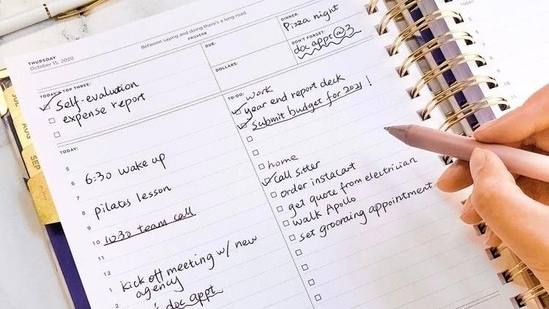 Between saying and doing there's a long road
PROVERB
THURSDAY
October 15, 2020
DUE:
DINNER:
Pizza night
DON'T FORGET:
doc appt @ 3
DOLLARS:
TODAY'S TOP THREE:
self-evaluation
expense report
TO-DO:
work
year end report deck
submit budget for 2021 !
home
call sitter
order instacart
get quote from electrician
walk Apollo
set grooming appointment
TODAY:
5
6 6:30 wake up
7
8 pilates lesson
9
10 10:30 team call
11
12
1 kick off meeting w/ new
2 agency
3 doc appt
AUG
SEP